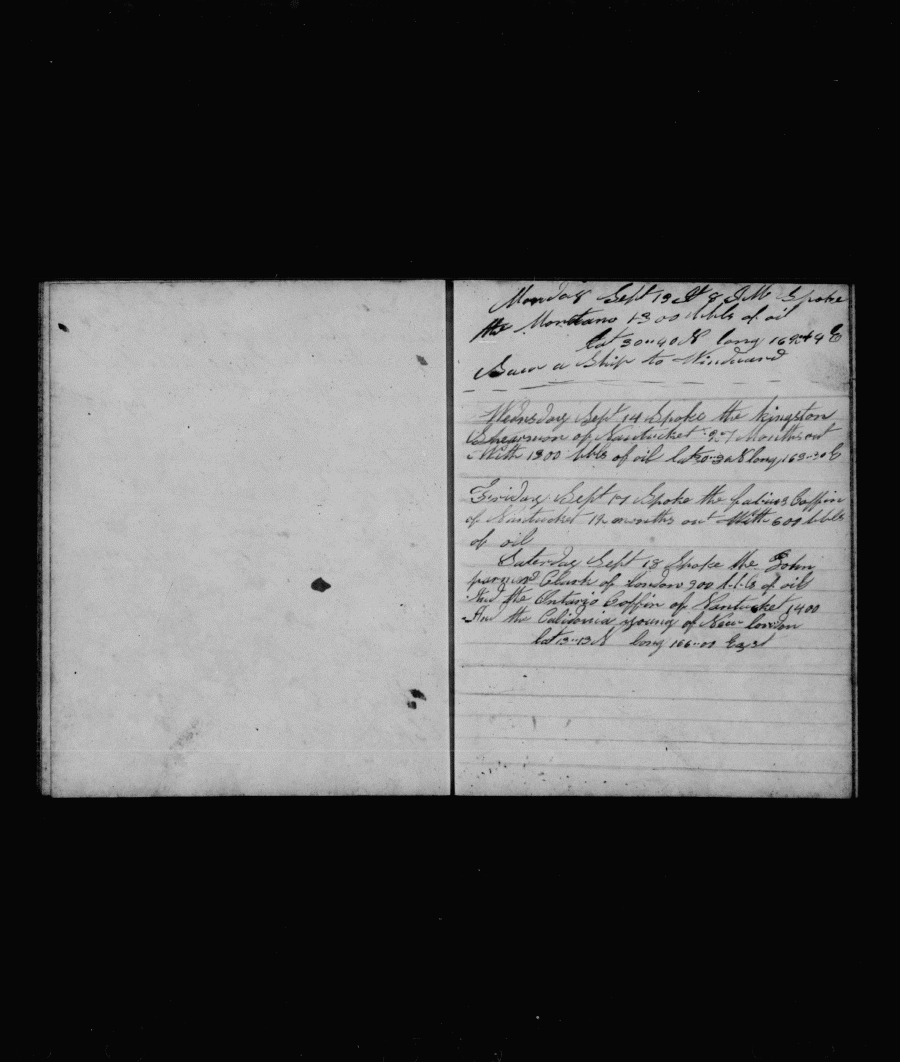 Monday Sept 13 At 8 P.M. Spoke
the Montano 1300 bbls of oil
Lat 30-40 N long 169 E
Saw a Ship to Windward
Wednsday Sept 14 Spoke the Kingston
Shearmon of Nantucket 27 Months out
With 1300 bbls of oil Lat N long E
Friday Sept 17 Spoke the fabius Coffin
of Nantucket months out With 600 bbls
of oil
Saterday Sept 18 Spoke the John
Clark of london 900 b.b.ls of oil
And the Ontario Coffin of Nantucket 1400
And the Calidonia young of New london
Lat 13-13 N long 166-00 East